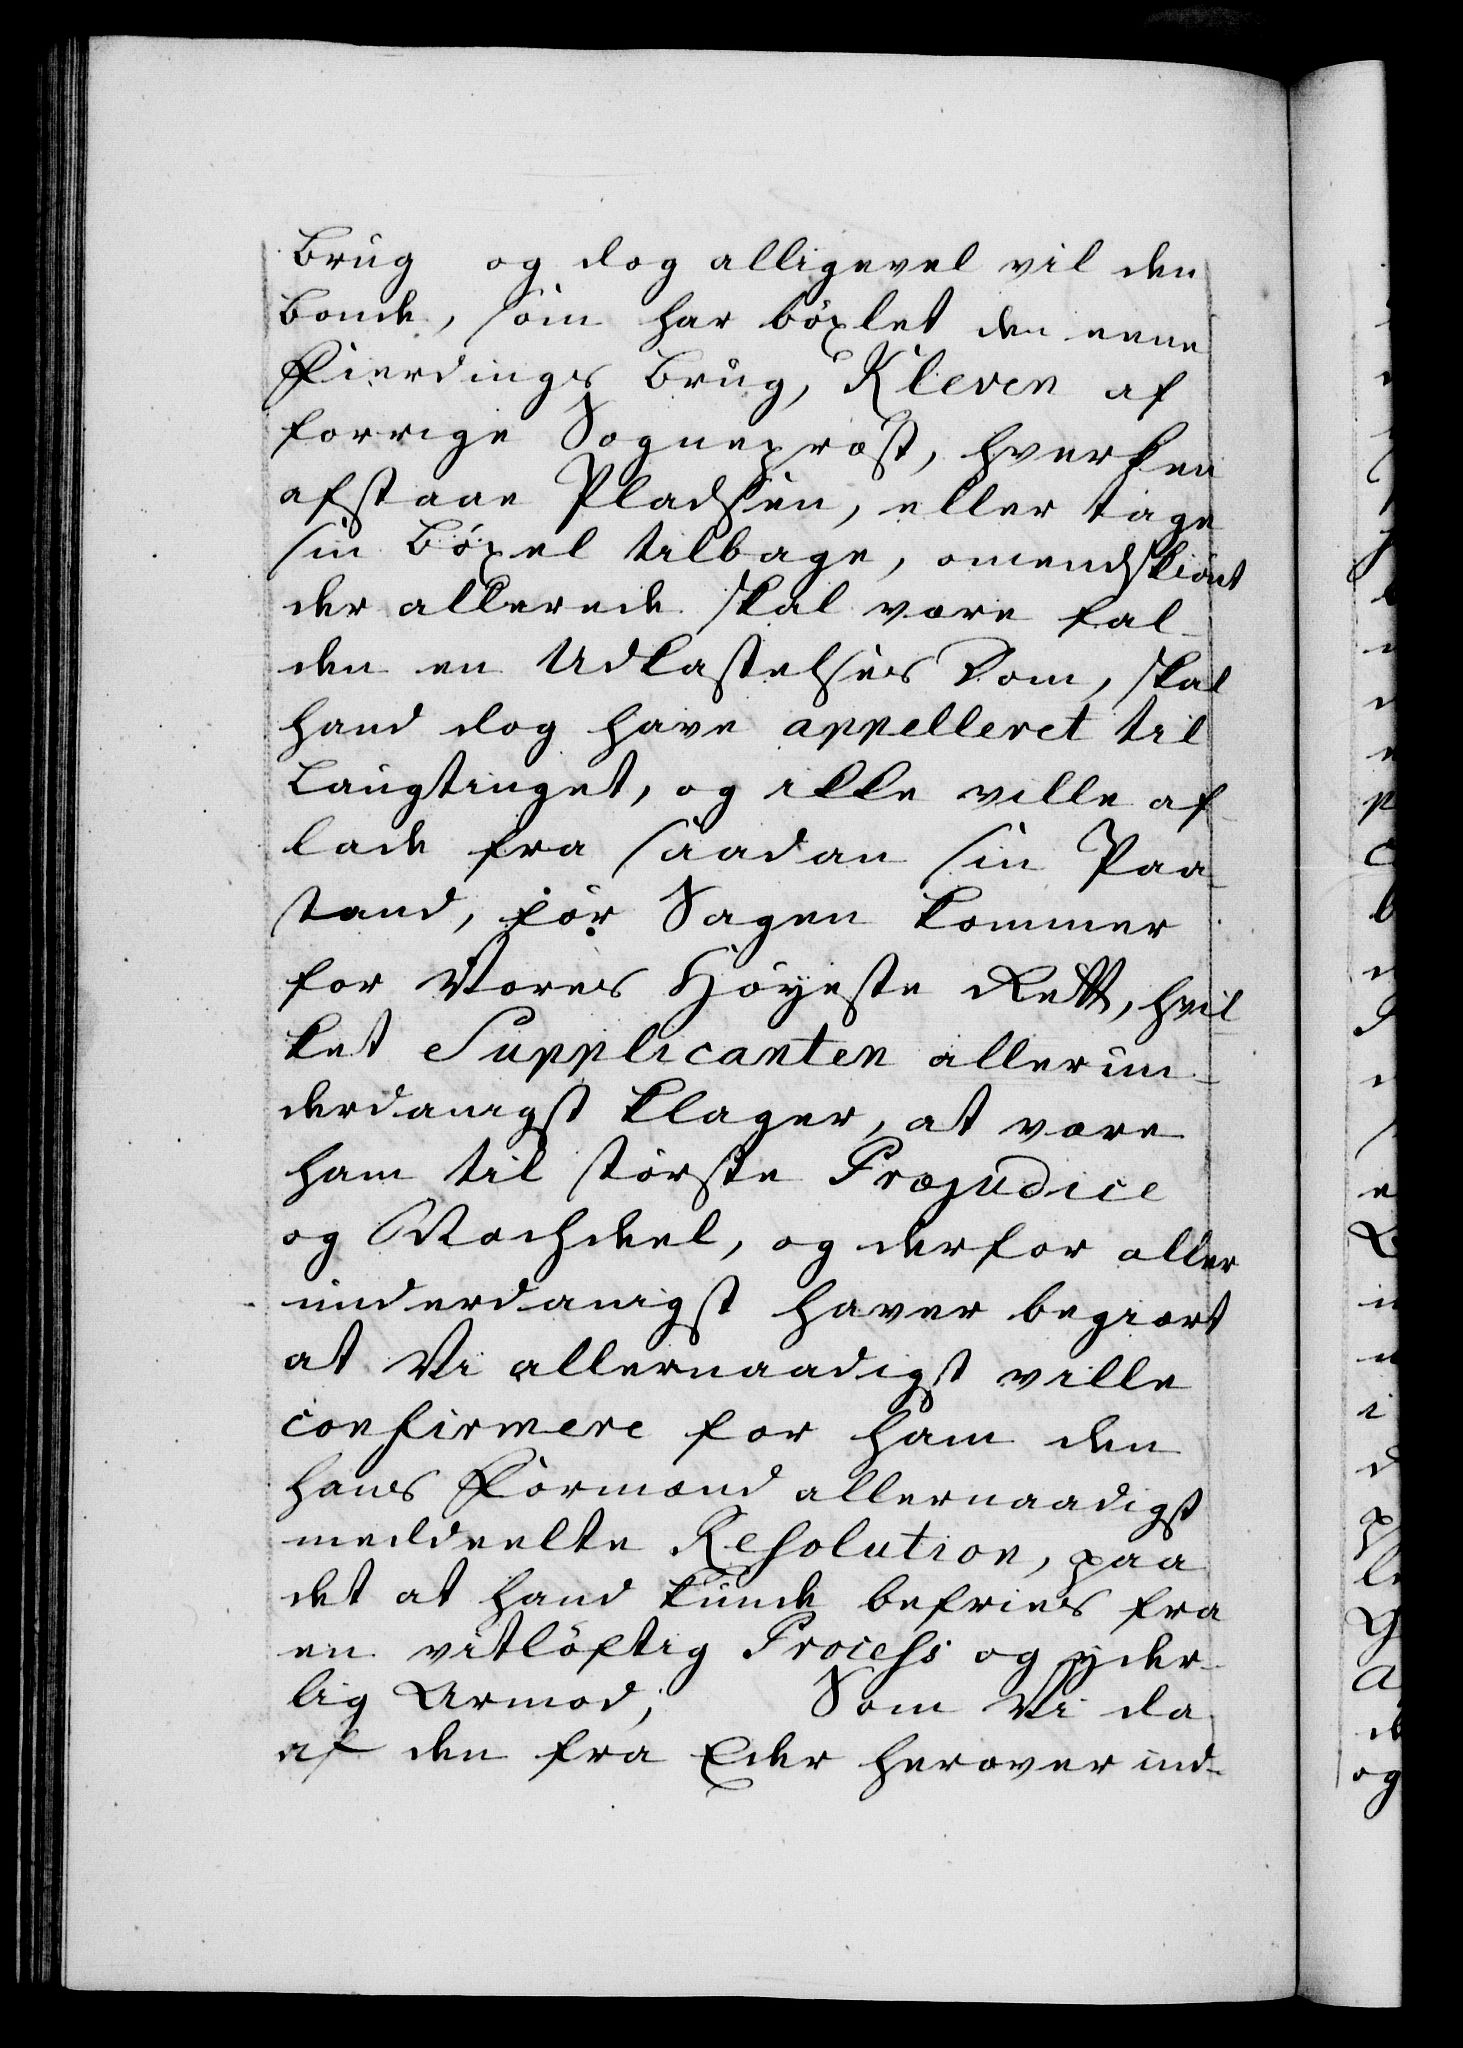 Brug og dog alligevel vil den
Bonde, som har böxlet den eene
Fierdings Brug, Kleven af
forrige Sognepræst, hverken
afstaae Pladsen, eller tage
sin Böxel tilbage, omendskiönt
der allerede skal være fal-
den en Udkastelses Dom, skal
hand dog have appelleret til
Laugtinget, og ikke ville af-
lade fra saadan sin Paa-
stand, för Sagen kommer
for Vores Höyeste Rett, hvil-
ket Supplicanten allerun-
derdanigst klager, at være
ham til störste Præjudice
og Nachdeel, og derfor aller
underdanigst haver begiært
at Vi allernaadigst ville
confirmere for ham den
hans Formand allernaadigst
meddeelte Resolution, paa
det at hand kunde befries fra
en vitlöftig Process og yder-
lig Armod, Som Vi da
af den fra Eder herover ind-